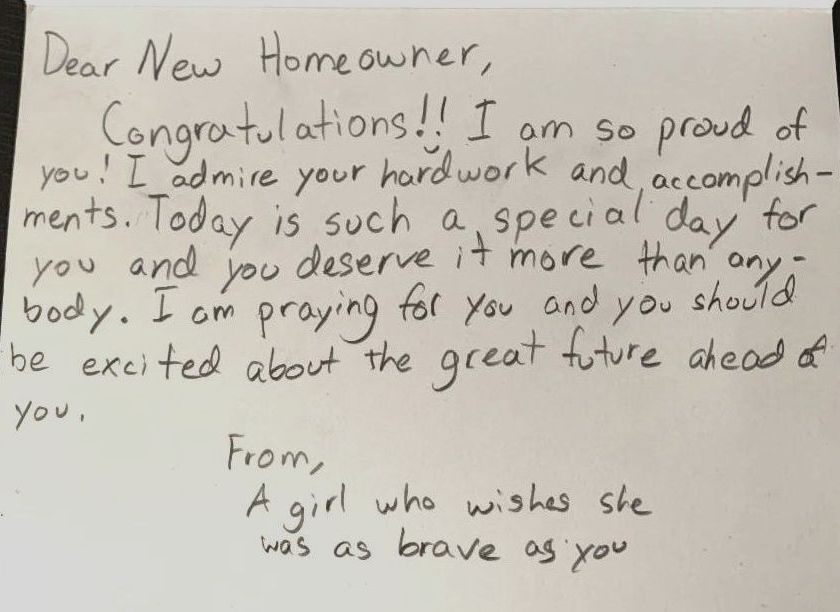 Dear New Homeowner,
Congratulations!! I am so proud of
you! I admire your hardwork and accomplish-
ments. Today is such a special day for
you and you deserve it more than any-
body. I am praying for you and you should
be excited about the great future ahead of
you.
From,
A girl who wishes she
was as brave as you